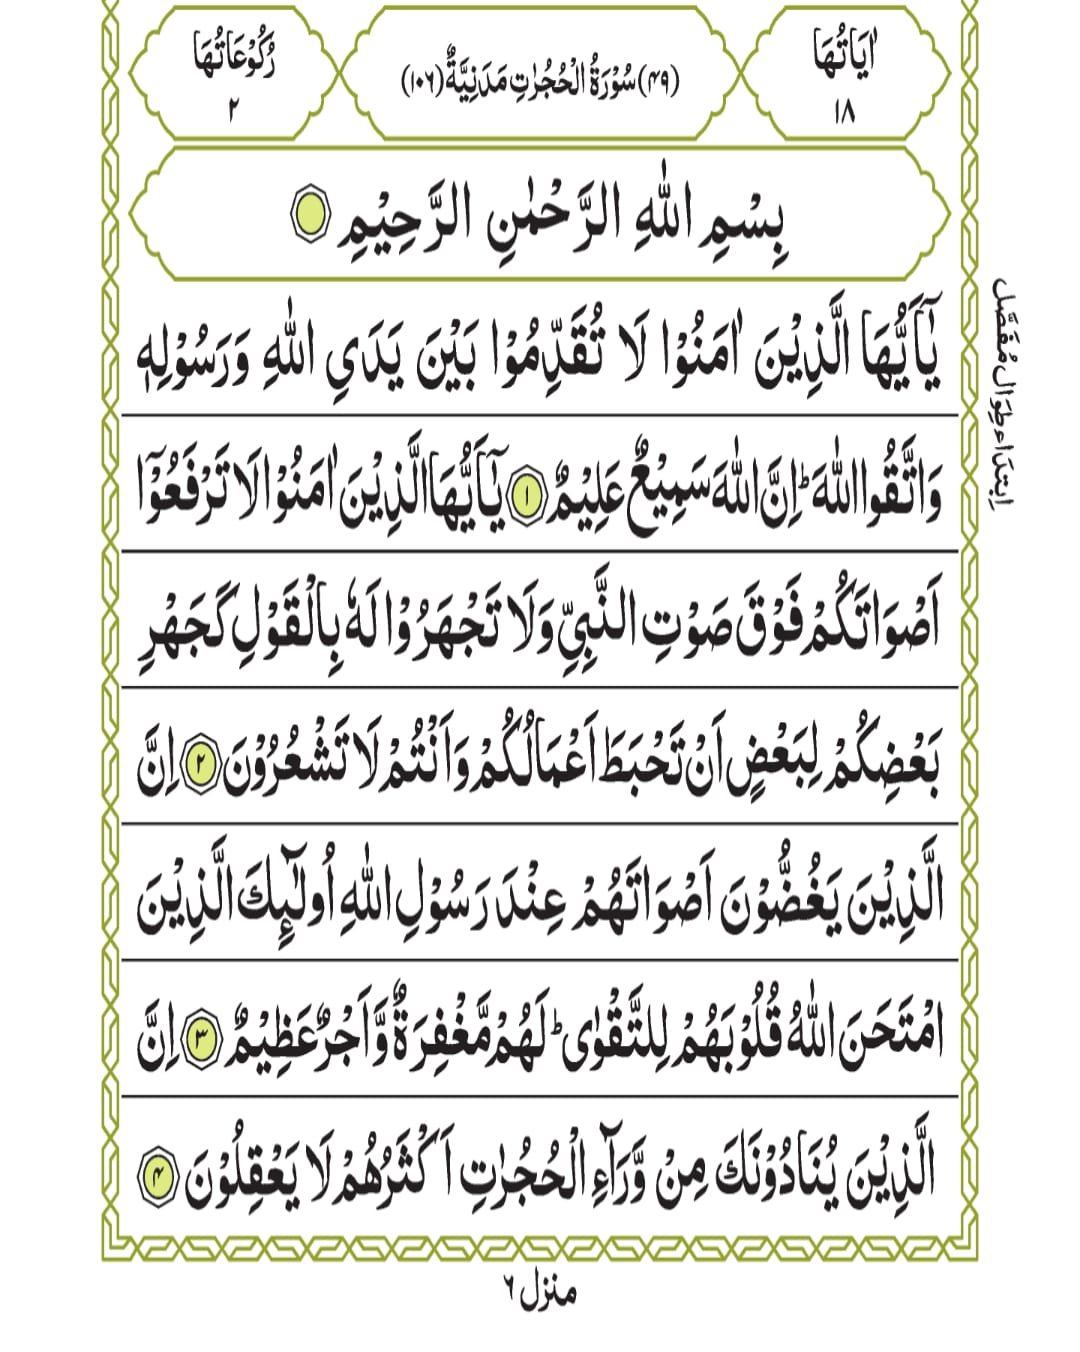 اٰيَاتُهَا
١٨
(٤٩) سُوْرَةُ الْحُجُرٰتِ مَدَنِيَّةٌ (١٠٦)
رُكُوْعَاتُهَا
٢
بِسْمِ اللّٰهِ الرَّحْمٰنِ الرَّحِيْمِ
يٰٓاَيُّهَا الَّذِيْنَ اٰمَنُوْا لَا تُقَدِّمُوْا بَيْنَ يَدَيِ اللّٰهِ وَرَسُوْلِهٖ
وَاتَّقُوا اللّٰهَ ؕ اِنَّ اللّٰهَ سَمِيْعٌ عَلِيْمٌ ١ يٰٓاَيُّهَا الَّذِيْنَ اٰمَنُوْا لَا تَرْفَعُوْٓا
اَصْوَاتَكُمْ فَوْقَ صَوْتِ النَّبِيِّ وَلَا تَجْهَرُوْا لَهٗ بِالْقَوْلِ كَجَهْرِ
بَعْضِكُمْ لِبَعْضٍ اَنْ تَحْبَطَ اَعْمَالُكُمْ وَاَنْتُمْ لَا تَشْعُرُوْنَ ٢ اِنَّ
الَّذِيْنَ يَغُضُّوْنَ اَصْوَاتَهُمْ عِنْدَ رَسُوْلِ اللّٰهِ اُولٰٓئِكَ الَّذِيْنَ
امْتَحَنَ اللّٰهُ قُلُوْبَهُمْ لِلتَّقْوٰى ؕ لَهُمْ مَّغْفِرَةٌ وَّاَجْرٌ عَظِيْمٌ ٣ اِنَّ
الَّذِيْنَ يُنَادُوْنَكَ مِنْ وَّرَآءِ الْحُجُرٰتِ اَكْثَرُهُمْ لَا يَعْقِلُوْنَ ٤
اِبتدَاء طِوَال مُفَصَّل
منزل ٦